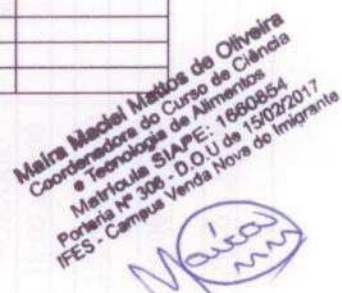 Maira Maciel Mattos de Oliveira
Coordenadora do Curso de Ciência
e Tecnologia de Alimentos
Matrícula SIAPE: 1660854
Portaria Nº 306 - D.O.U de 15/02/2017
IFES - Campus Venda Nova do Imigrante
Maíra
MM